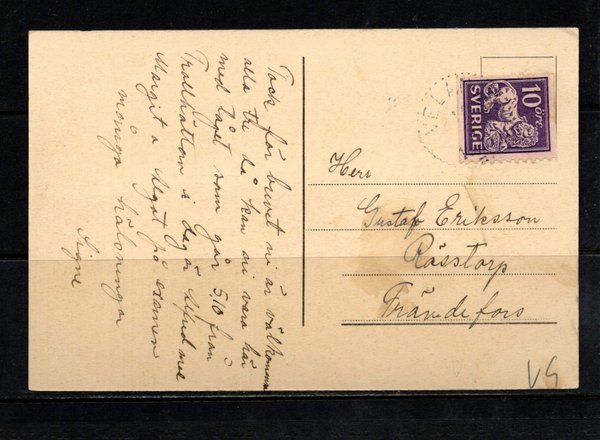 Tack för brevet ni är välkomna
alla tre då kan ni vara här
med tåget som går 5,10 från
Trollhättan i dag är Sigurd med
Margit o Begat på examen
många hälsningar
Signe
10 öre
SVERIGE
Herr
Gustaf Eriksson
Råsstorp
Frändefors
VG